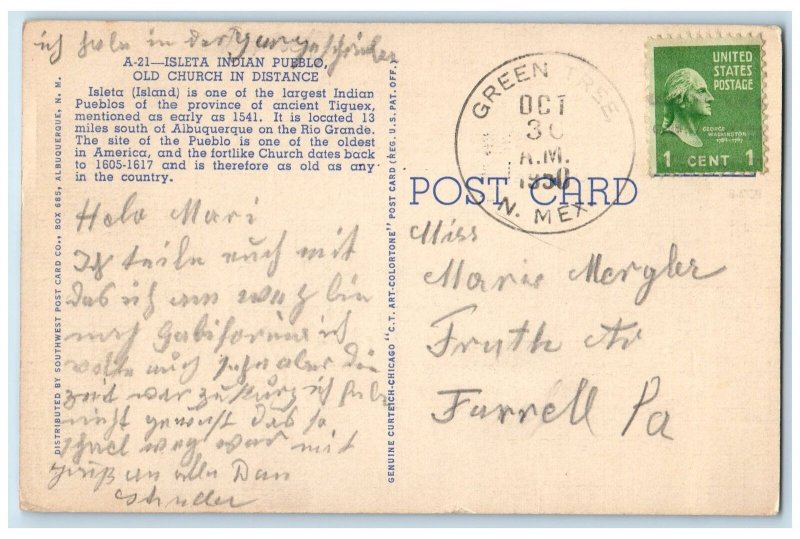 ich habe in der
A-21—ISLETA INDIAN PUEBLO,
OLD CHURCH IN DISTANCE
Isleta (Island) is one of the largest Indian
Pueblos of the province of ancient Tiguex,
mentioned as early as 1541. It is located 13
miles south of Albuquerque on the Rio Grande.
The site of the Pueblo is one of the oldest
in America, and the fortlike Church dates back
to 1605-1617 and is therefore as old as any
in the country.
Helo Mari
Ich teile euch mit
das ich am weg bin
nach Galifornia ich
wolte euch sehn aber die
zeit war zu kurz ich habe
nicht gewust das so
schnel weg war mit
gruß an alle Dan
DISTRIBUTED BY SOUTHWEST POST CARD CO., BOX 685, ALBUQUERQUE, N. M.
GENUINE CURTEICH-CHICAGO "C. T. ART-COLORTONE" POST CARD (REG. U. S. PAT. OFF.)
GREEN TREE
OCT
30
A.M.
1950
N. MEX.
UNITED
STATES
POSTAGE
GEORGE
WASHINGTON
1 CENT 1
POST CARD
Miss
Marie Mergler
Fruth Av
Farrell Pa